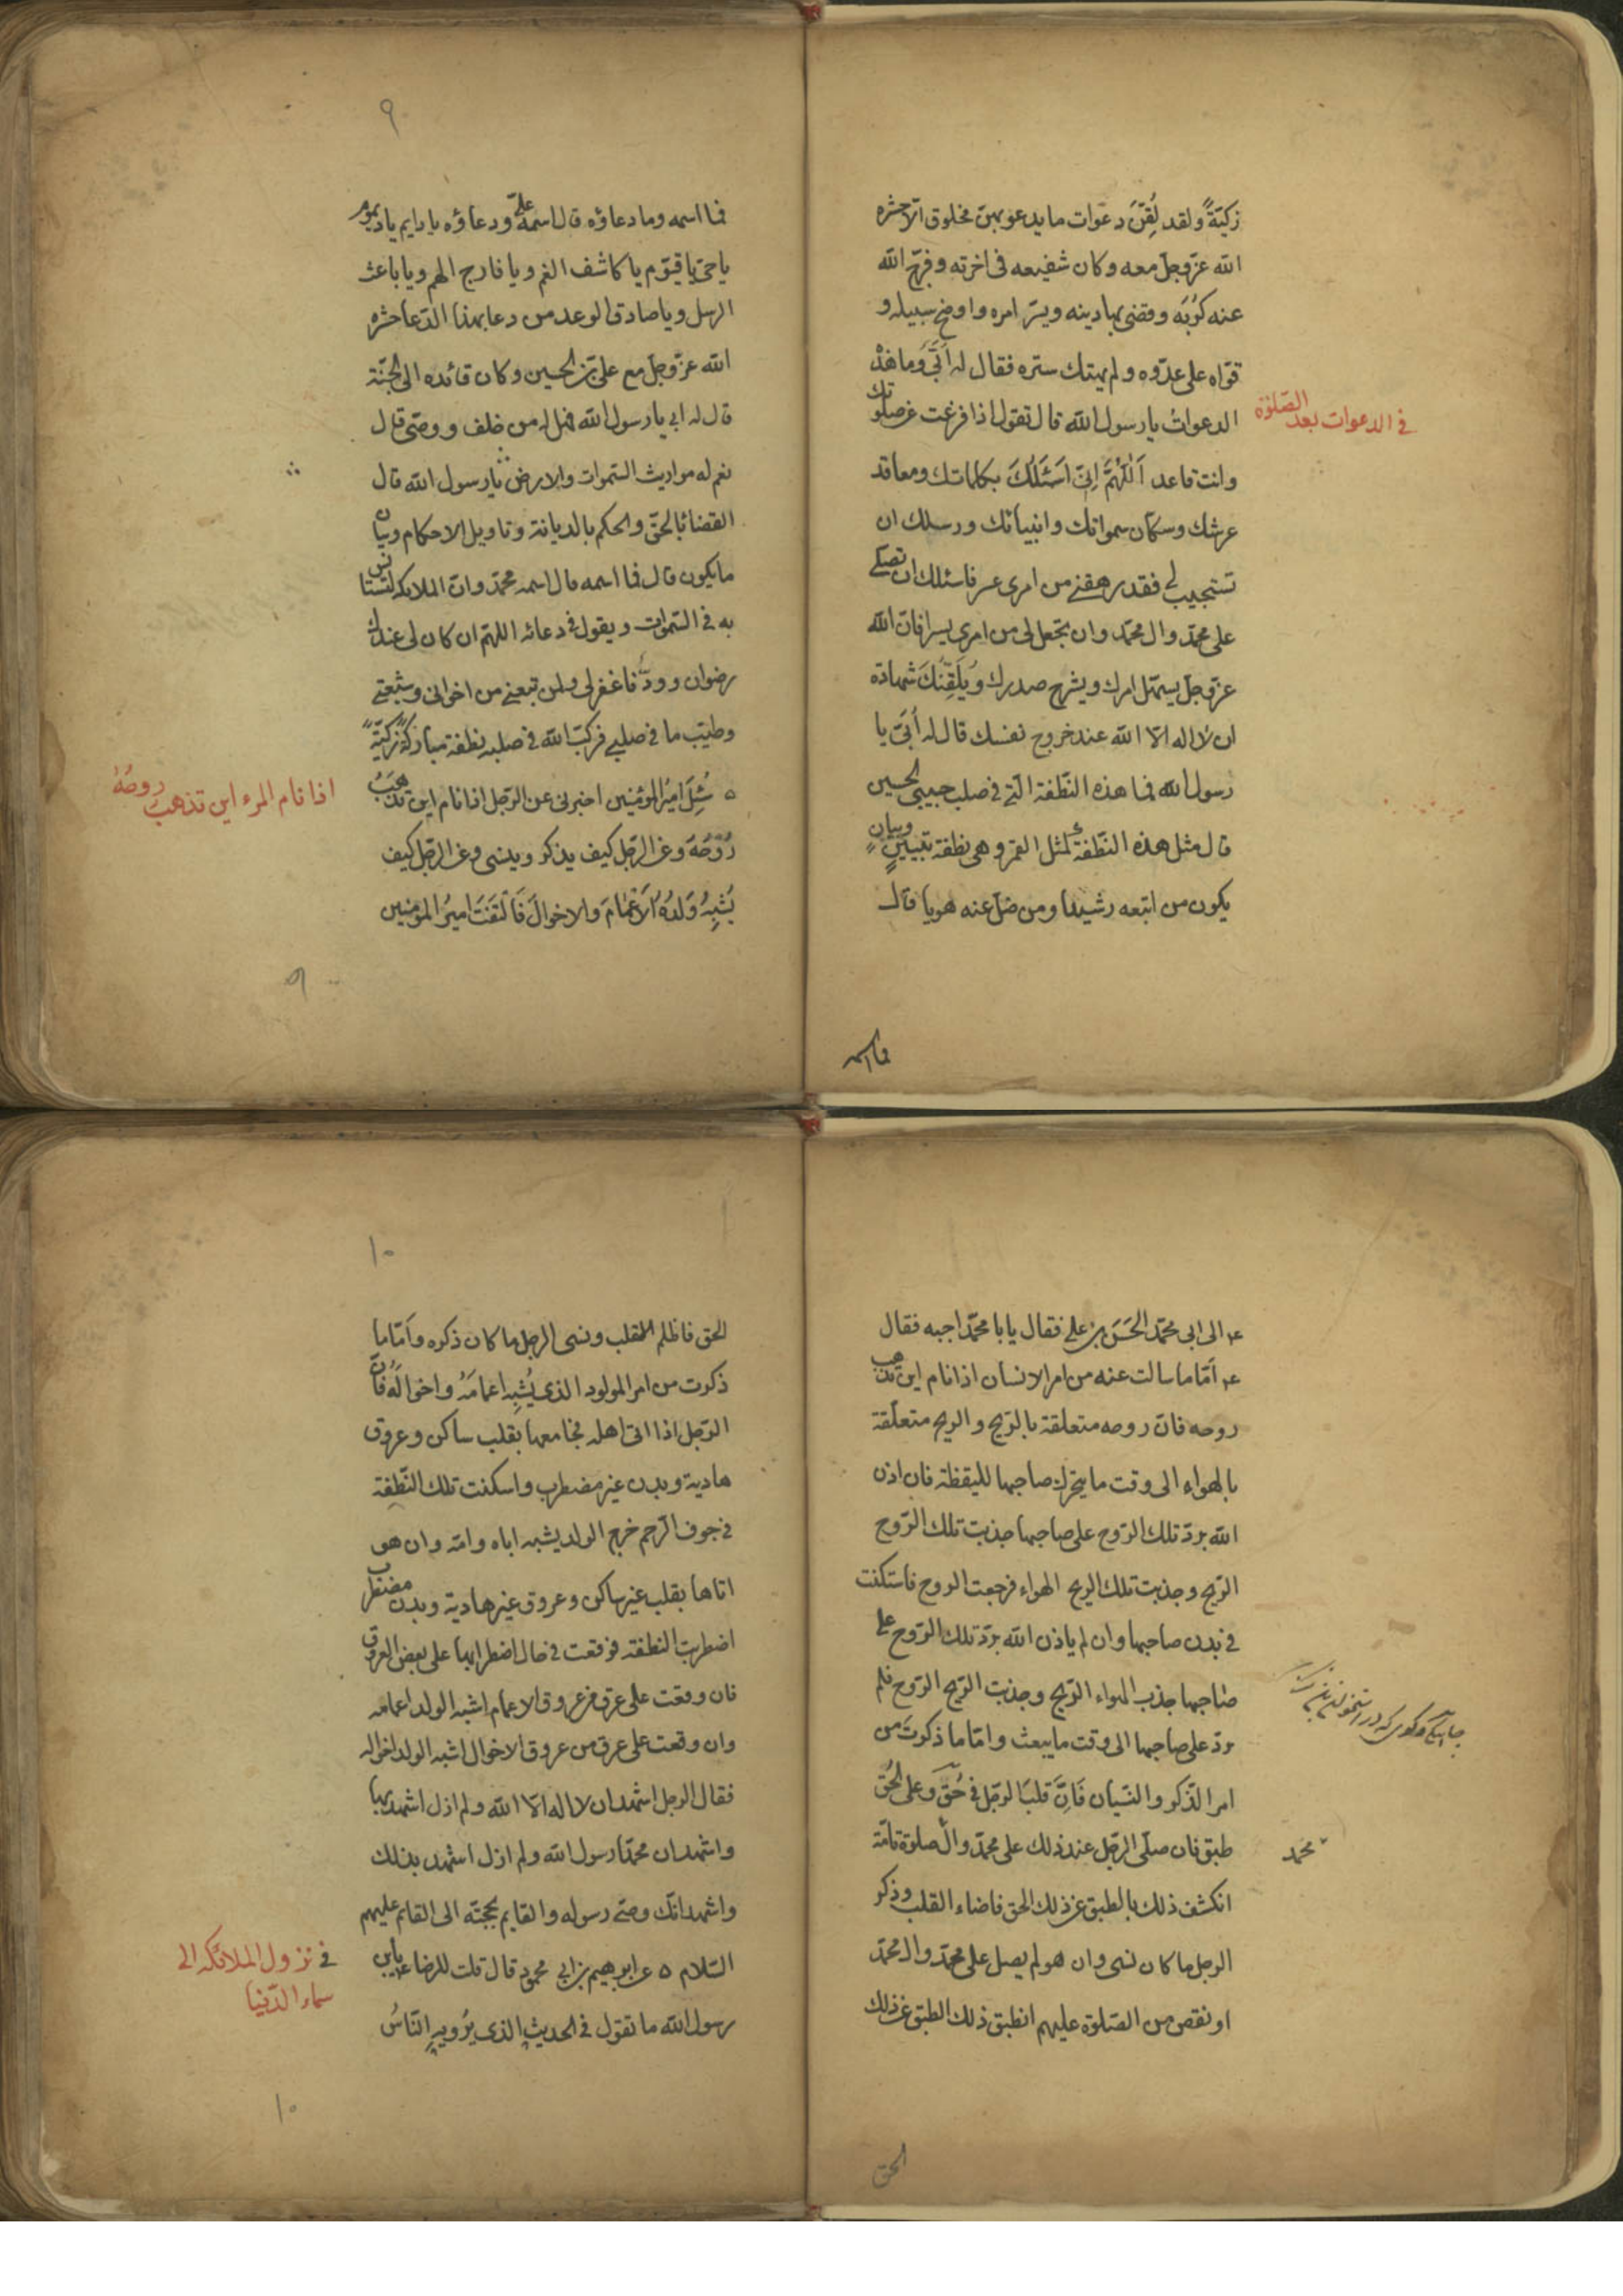 زكيّةً ولقد لُقِّنَ دعوات ما يدعو بهنّ مخلوق الّا حشره
الله عزّ وجلّ معه وكان شفيعه فى اخرته وفرّج الله
عنه كَرْبَه وقضى بها دينه ويسّر امره واوضح سبيله و
قوّاه على عدوّه ولم يهتك ستره فقال له اُبَىّ وما هذه
الدعوات يا رسول الله قال تقول اذا فرغت من صلوتك
فى الدعوات بعد الصّلوة
وانت قاعد اَللّٰهُمَّ اِنّى اَسْئَلُكَ بكلماتك ومعاقد
عرشك وسكّان سمواتك وانبيائك ورسلك ان
تستجيب لى فقد رهقنى من امرى عسر فاسئلك ان تصلّى
على محمّد وال محمّد وان تجعل لى من امرى يسرا فانّ الله
عزّ وجلّ يسهّل امرك ويشرح صدرك ويُلَقِّنُكَ شهادة
ان لا اله الّا الله عند خروج نفسك قال له اُبَىّ يا
رسول الله فما هذه النّطفة الّتى فى صلب حبيبى الحسين
قال مثل هذه النّطفة كمثل القمر وهى نطفة تبيينٍ وبيانٍ
يكون من اتبعه رشيدا ومن ضلّ عنه هويا قال
فما اسمه
٩
فما اسمه وما دعاؤه قال اسمه علىّ ودعاؤه يا دايم يا ديموم
يا حىّ يا قيّوم يا كاشف الغم ويا فارج الهم ويا باعث
الرسل ويا صادق الوعد من دعا بهذا الدّعا حشره
الله عزّ وجلّ مع علىّ بن الحسين وكان قائده الى الجنّة
قال له ابى يا رسول الله فهل له من خلف ووصّى قال
نعم له مواريث السّموات والارض يا رسول الله قال
القضائ بالحقّ والحكم بالديانة وتاويل الاحكام وبيان
ما يكون قال فما اسمه قال اسمه محمّد وانّ الملائكة لتستانس
به فى السّموات ويقول فى دعائه اللهمّ ان كان لى عندك
رضوان وودّ فاغفر لى ولمن تبعنى من اخوانى وشيعتى
وطيّب ما فى صلبى فركّب الله فى صلبه نطفة مباركةً زكيّةً
٥ سُئِلَ اميرُ المؤمنين اخبرنى عن الرّجل اذا نام اين تذهبُ
اذا نام المرء اين تذهب روحُهُ
رُوْحُهُ وعن الرّجل كيف يذكر وينسى وعن الرّجل كيف
يُشْبِهُ وَلَدُهُ الْاَعْمَامَ والاخوالَ فَالْتَفَتَ اميرُ المؤمنين
٩
ع الى ابى محمّد الحَسَن بن على فقال يا با محمّد اجبه فقال
ع امّا ما سالت عنه من امر الانسان اذا نام اين تذهب
روحه فانّ روحه متعلقة بالرّيح والريح متعلّقة
بالهواء الى وقت ما يتحرّك صاحبها لليقظة فان اذن
الله بردّ تلك الرّوح على صاحبها جذبت تلك الرّوح
الرّيح وجذبت تلك الريح الهواء فرجعت الروح فاستكنت
فى بدن صاحبها وان لم ياذن الله بردّ تلك الرّوح على
صاحبها جذب الهواء الرّيح وجذبت الرّيح الرّوح فلم
تردّ على صاحبها الى وقت ما يبعث وامّا ما ذكرتَ من
امر الذّكر والنّسيان فَاِنَّ قلبَ الرّجل فى حُقّ وَعلى الحُقّ
طبق فان صلّى الرّجل عند ذلك على محمّد وال صلوة تامّة
محمّد
انكشف ذلك بالطبق عن ذلك الحق فاضاء القلب وذكر
الرجل ما كان نسى وان هو لم يصل على محمّد وال محمّد
او نقص من الصّلوة عليهم انطبق ذلك الطبق عن ذلك
الحق
١٠
الحق فاظلم القلب ونسى الرجل ما كان ذكره وامّا ما
ذكرت من امر المولود الذى يُشْبِه اعمامَهُ واخوالَهُ فانّ
الرّجل اذا اتى اهله فجامعها بقلب ساكن وعروق
هادية وبدن غير مضطرب واسكنت تلك النّطفة
فى جوف الرّحم خرج الولد يشبه اباه وامّه وان هو
اتاها بقلب غير ساكن وعروق غير هادية وبدن مضطرب
اضطربت النطفة فوقعت فى حال اضطرابها على بعض العروق
فان وقعت على عرق من عروق الاعمام اشبه الولد اعمامه
وان وقعت على عرق من عروق الاخوال اشبه الولد اخواله
فقال الرجل اشهد ان لا اله الّا الله ولم ازل اشهد بها
واشهد ان محمّدا رسول الله ولم ازل اشهد بذلك
واشهد انّك وصىّ رسوله والقايم بحجّته الى القائم عليهم
السّلام ٥ عن ابرهيم بن ابى محمود قال قلت للرضا ع يا بن
فى نزول الملائكة الى
سماء الدّنيا
رسول الله ما تقول فى الحديثِ الذى يَرْويهِ النّاسُ
١٠